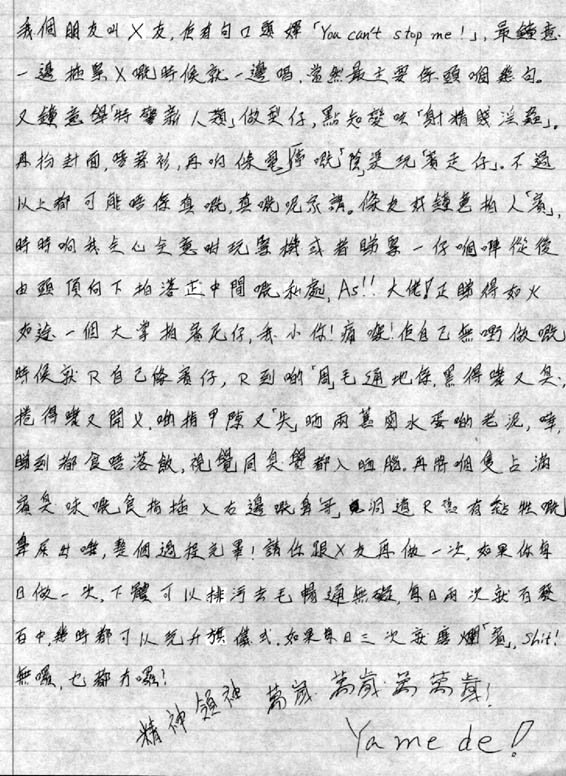 我個朋友叫X友,但有句口頭禪「You can't stop me!」,最鍾意
一邊拖累X嘅時候就一邊唱,當然最主要係頭嗰幾句。
又鍾意學「特警新人類」做型仔,點知變咗「射精賤淫蟲」。
再扮封面,唔著衫,再响條
以上都可能唔係真嘅,真嘅呢家講。條友好鍾意拍人「賓」,
時時响我全心全意咁玩 機或者睇 一仔嗰陣從後
由頭頂向下拍落正中間嘅私處,As!! 大佬!正睇得如火
如荼一個大掌拍落 仔,我小你!痛㗎!但自己無嘢做嘅
時候就R自己條賓仔,R到啲「周」毛通地係,黑得嚟又臭,
捲得嚟又開叉,啲指甲隙又「失」晒兩萬鹵水蛋啲老泥,嘩,
睇到都食唔落飯,視覺同臭覺都入晒腦。再將嗰隻占滿
賓臭味嘅食指插入右邊嘅鼻哥窿洞邊R
鼻屎出嚟,整個過程完畢!請你跟X友再做一次,如果你每
日做一次,下體可以排污去毛暢通無礙,每日兩次就百發
百中,幾時都可以玩升旗儀式,如果每日三次就磨爛「賓」,Shit!
無囉,乜都冇囉!
精神領神 萬歲 萬歲 萬萬歲!
Ya me de!